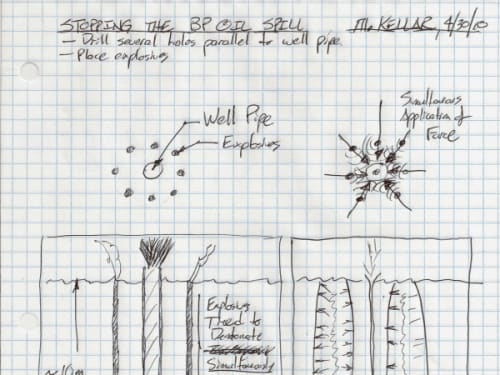 STOPPING THE BP OIL SPILL
M. KELLAR, 4/30/10
- Drill several holes parallel to well pipe.
- Place explosives
Well Pipe
Explosives
Simultaneous
Application of
Force
Explosives
Timed to
Detonate
Simultaneously
~10m